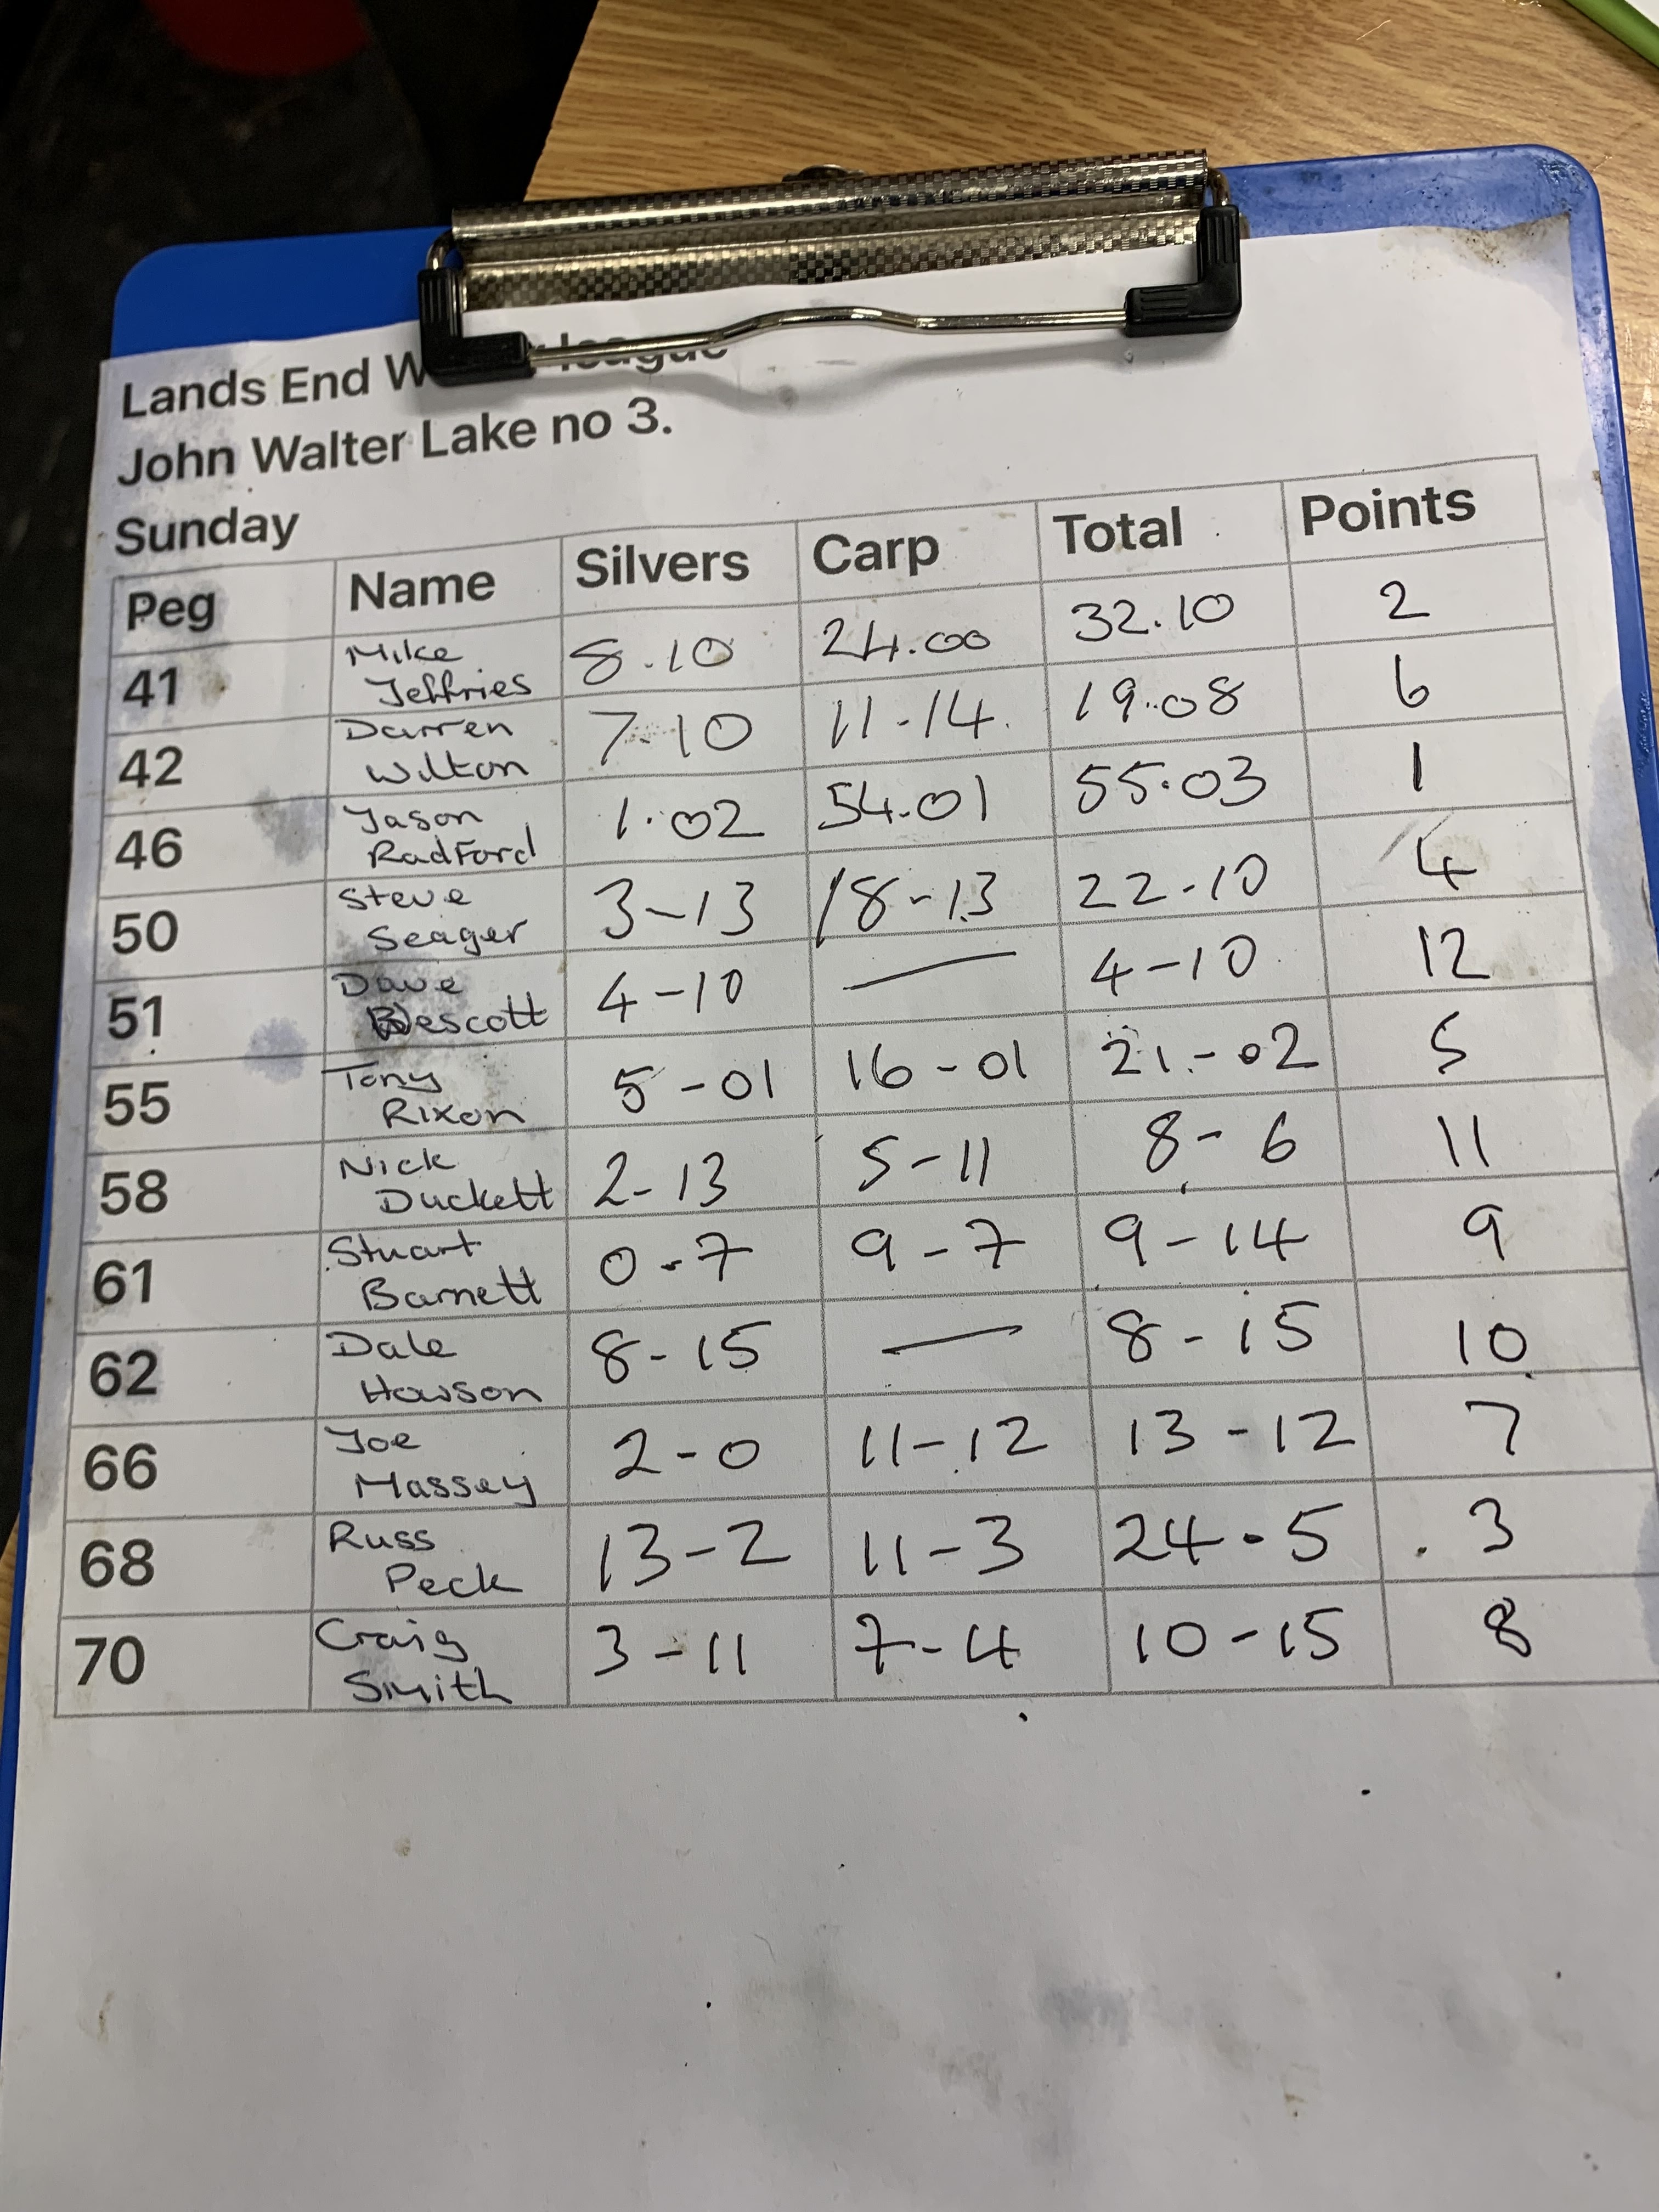 Lands End W league
John Walter Lake no 3.
Sunday
Peg Name Silvers Carp Total Points
41 Mike Jeffries 8.10 24.00 32.10 2
42 Darren Wilton 7-10 11-14. 19.08 6
46 Jason Radford 1.02 54.01 55.03 1
50 Steve Seager 3-13 18-13 22-10 4
51 Dave Wescott 4-10 — 4-10 12
55 Tony Rixon 5-01 16-01 21-02 5
58 Nick Duckett 2-13 5-11 8-6 11
61 Stuart Barnett 0-7 9-7 9-14 9
62 Dale Howson 8-15 — 8-15 10
66 Joe Massey 2-0 11-12 13-12 7
68 Russ Peck 13-2 11-3 24-5 3
70 Craig Smith 3-11 7-4 10-15 8